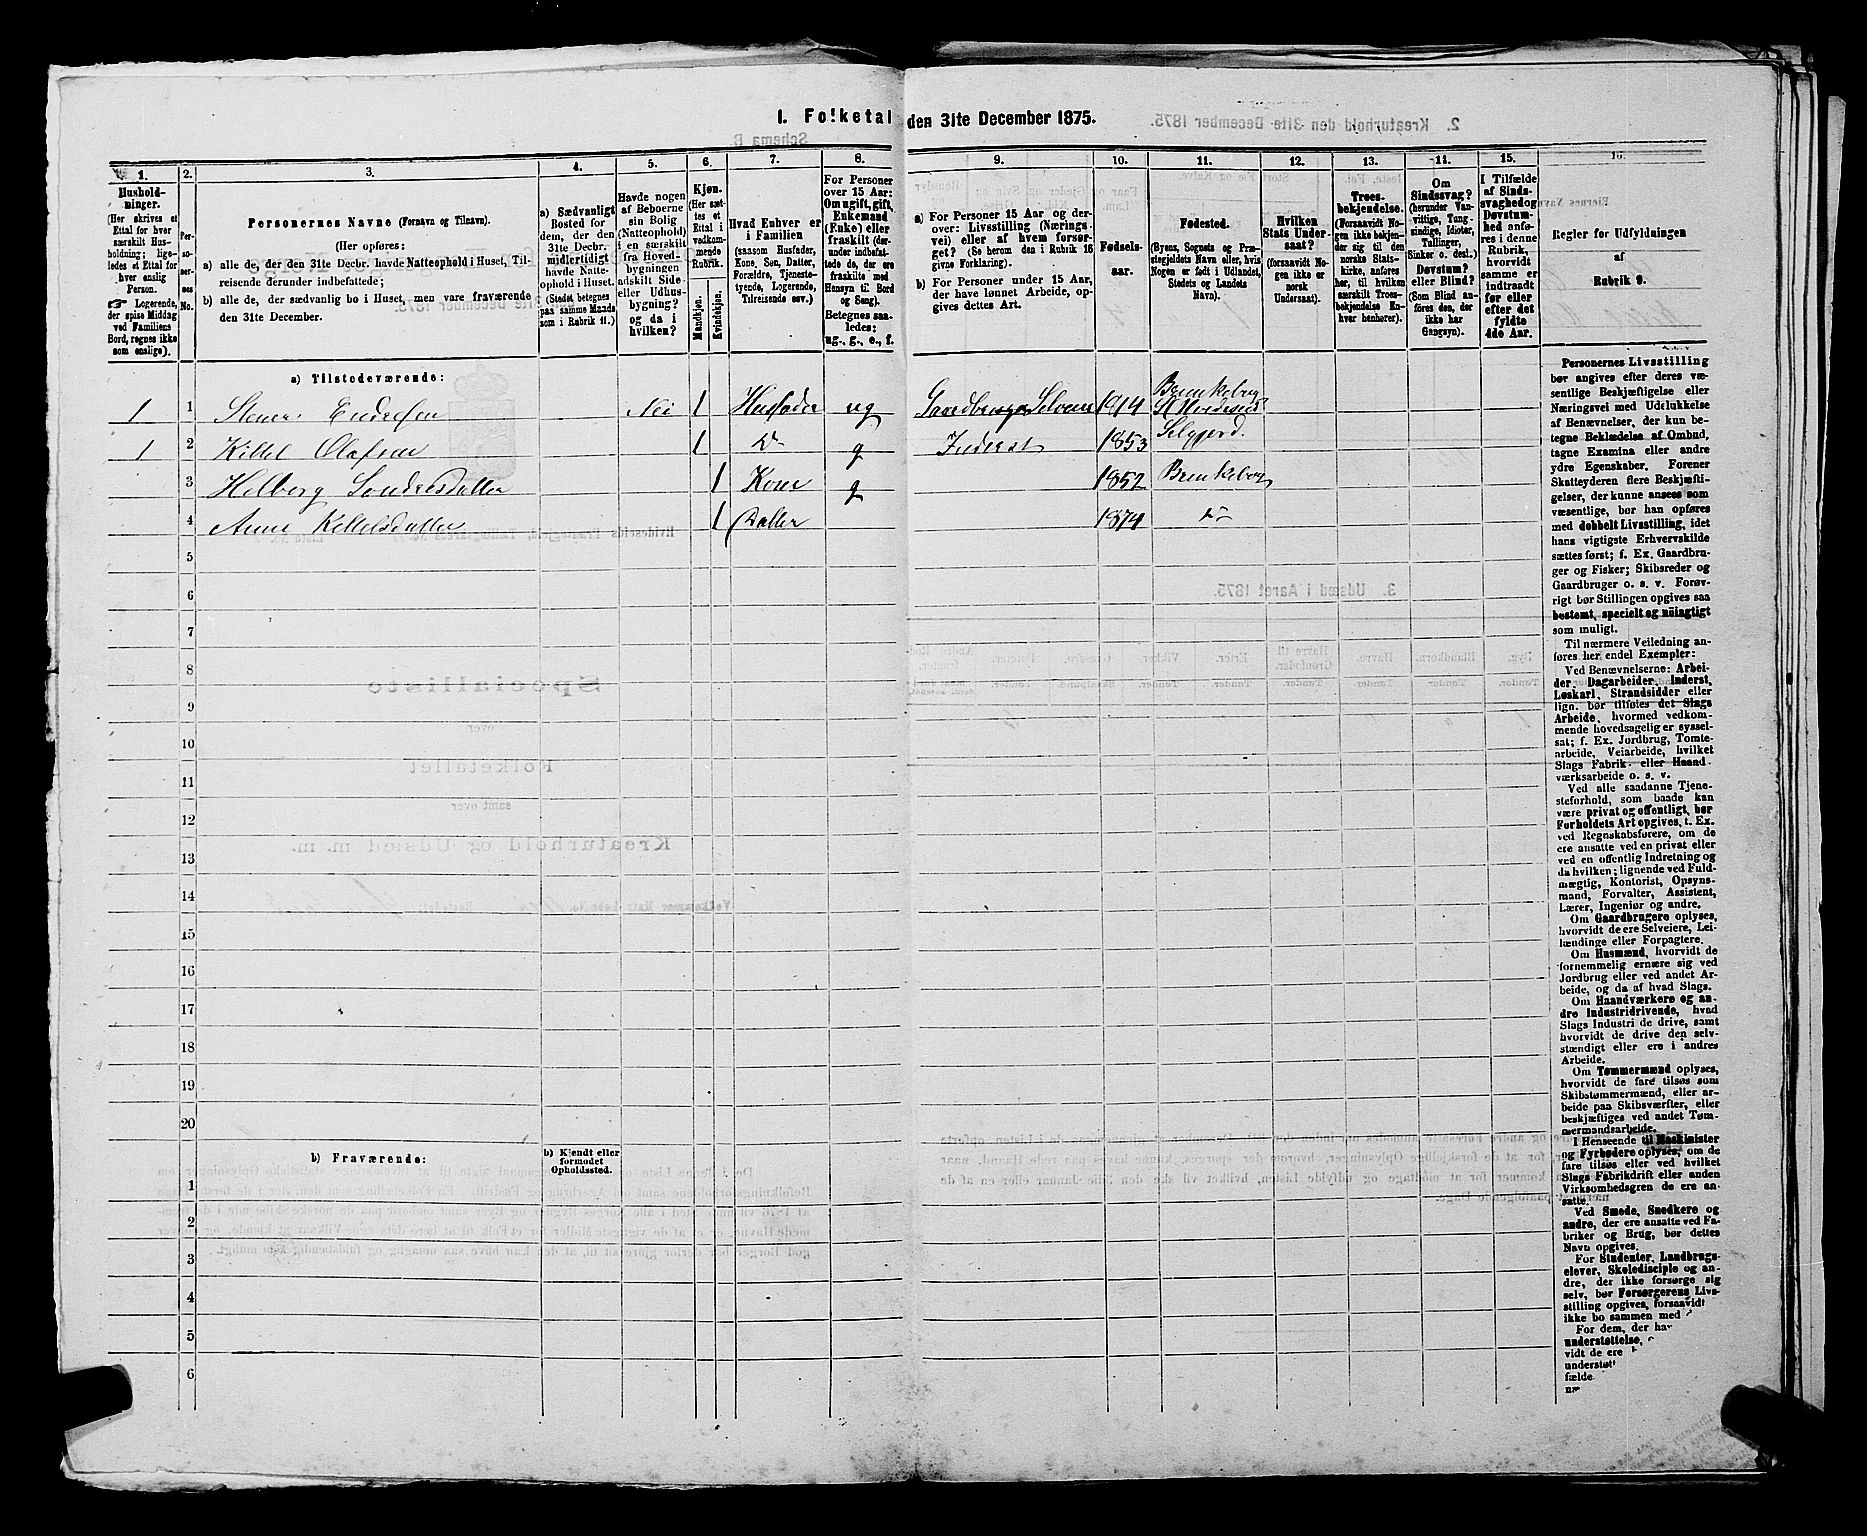 1. Folketal den 31te December 1875.
1.
2.
3.
4.
5.
6.
7.
8.
9.
10.
11.
12.
13.
14.
15.
16.
Hushold-
ninger.
(Her skrives et
Ettal for hver
særskilt Hus-
holdning; lige-
ledes et Ettal for
hver enslig
Person.
☞ Logerende,
der spise Middag
ved Familiens
Bord, regnes ikke
som enslige).
Per-
so-
ner-
nes
No.
Personernes Navne (Fornavn og Tilnavn).
(Her opføres:
a) alle de, der den 31te Decbr. havde Natteophold i Huset, Til-
reisende derunder indbefattede;
b) alle de, der sædvanlig bo i Huset, men vare fraværende
den 31te December.
a) Sædvanligt
Bosted for
dem, der den
31te Decbr.
midlertidigt
havde Natte-
ophold i Huset.
(Stedet betegnes
paa samme Maade
som i Rubrik 11.)
Havde nogen
af Beboerne
sin Bolig
(Natteophold)
i en særskilt
fra Hoved-
bygningen
adskilt Side-
eller Udhus-
bygning?
og da i
hvilken?
Kjøn.
(Her sæt-
tes et
Ettal i
vedkom-
mende
Rubrik.
Mandkjøn.
Kvindekjøn.
Hvad Enhver er
i Familien
(saasom Husfader,
Kone, Søn, Datter,
Forældre, Tjeneste-
tyende, Logerende,
Tilreisende osv.)
For Personer
over 15 Aar:
Om ugift, gift,
Enkemand
(Enke) eller
fraskilt (der-
under indbefat-
tede de, der ere
fraskilte med
Hensyn til Bord
og Seng).
Betegnes saa-
ledes:
ug., g., e., f.
a) For Personer 15 Aar og der-
over: Livsstilling (Nærings-
vei) eller af hvem forsør-
get? (Se herom den i Rubrik 16
givne Forklaring).
b) For Personer under 15 Aar,
der have lønnet Arbeide, op-
gives dettes Art.
Fødsels-
aar.
Fødested.
(Byens, Sognets og Præ-
stegjeldets Navn eller, hvis
Nogen er født i Udlandet,
Stedets og Landets
Navn).
Hvilken
Stats Under-
saat?
(forsaavidt No-
gen ikke er
norsk
Undersaat).
Troes-
bekjendelse.
(Forsaavidt No-
gen ikke bekjen-
der sig til den
norske Stats-
kirke, anføres
her, til hvilken
særskilt Troes-
bekjendelse En-
hver henhører).
Om
Sindssvag?
(herunder Van-
vittige, Tung-
sindige, Idioter,
Tullinger,
Sinker o. desl.)
Døvstum?
eller Blind?
(Som Blind an-
føres den, der
ikke har
Gangsyn).
I Tilfælde
af Sinds-
svaghed og
Døvstum-
hed anfø-
res i denne
Rubrik,
hvorvidt
samme er
indtraadt
før eller
efter det
fyldte
4de Aar.
Regler for Udfyldningen
af
Rubrik 9.
a) Tilstedeværende:
1 1 Stener Endresen Nei 1 Husfader ug Gaardbruger Selveier 1814 Brunkeberg
1 2 Kittel Olafsen 1 Do g Inderst 1853 Selgjord.
3 Helberg Sondresdatter 1 Kone g 1852 Brunkeberg
4 Anne Kittelsdatter 1 Datter 1874 do
5
6
7
8
9
10
11
12
13
14
15
16
17
18
19
20
b) Fraværende:
b) Kjendt eller
formodet
Opholdssted.
1
2
3
4
5
6
Personernes Livsstilling
bør angives efter deres væ-
sentlige Beskjæftigelse eller
Næringsvei med Udelukkelse
af Benævnelser, der kun be-
tegne Beklædelse af Ombud,
tagne Examina eller andre
ydre Egenskaber. Forener
Skatteyderen flere Beskjæfti-
gelser, der kunne ansees som
væsentlige, bør han opføres
med dobbelt Livsstilling, idet
hans vigtigste Erhvervskilde
sættes først; f. Ex. Gaardbru-
ger og Fisker; Skibsreder og
Gaardbruger o. s. v. Forøv-
rigt bør Stillingen opgives saa
bestemt, specielt og nöiagtigt
som muligt.
Til nærmere Veiledning an-
føres her endel Exempler:
Ved Benævnelserne: Arbei-
der, Dagarbeider, Inderst,
Løskarl, Strandsidder eller
lign. bør tilføies det Slags
Arbeide, hvormed vedkom-
mende hovedsagelig er syssel-
sat; f. Ex. Jordbrug, Tomte-
arbeide, Veiarbeide, hvilket
Slags Fabrik- eller Haand-
værksarbeide o. s. v.
Ved alle saadanne Tjene-
steforhold, som baade kan
være privat og offentligt, bør
Forholdets Art opgives, t. Ex.
ved Regnskabsførere, om de
ere ansatte ved en privat eller
ved en offentlig Indretning og
da hvilken; lignende ved Fuld-
mægtig, Kontorist, Opsyns-
mand, Forvalter, Assistent,
Lærer, Ingeniør og andre.
Om Gaardbrugere oplyses,
hvorvidt de ere Selveiere, Lei-
lændinge eller Forpagtere.
Om Husmænd, hvorvidt de
fornemmelig ernære sig ved
Jordbrug eller ved andet Ar-
beide, og da af hvad Slags.
Om Haandværkere og an-
dre Industridrivende, hvad
Slags Industri de drive, samt
hvorvidt de drive den selv-
stændigt eller ere i andres
Arbeide.
Om Tømmermænd oplyses,
hvorvidt de fare tilsøs som
Skibstømmermænd, eller ar-
beide paa Skibsværfter, eller
beskjæftiges ved andet Tøm-
mermandsarbeide.
I Henseende til Maskinister
og Fyrbødere oplyses, om de
fare tilsøs eller ved hvilket
Slags Fabrikdrift eller anden
Virksomhedsgren de ere an-
satte.
Ved Smede, Snedkere og
andre, der ere ansatte ved Fa-
briker og Brug, bør dettes
Navn opgives.
For Studenter, Landbrugs-
elever, Skoledisciple og an-
dre, der ikke forsørge sig
selv, bør Forsørgerens Livs-
stilling opgives, forsaavidt
ikke bo sammen med
For dem, der hav
understøttelse,
vidt de ere
understøt
fælde